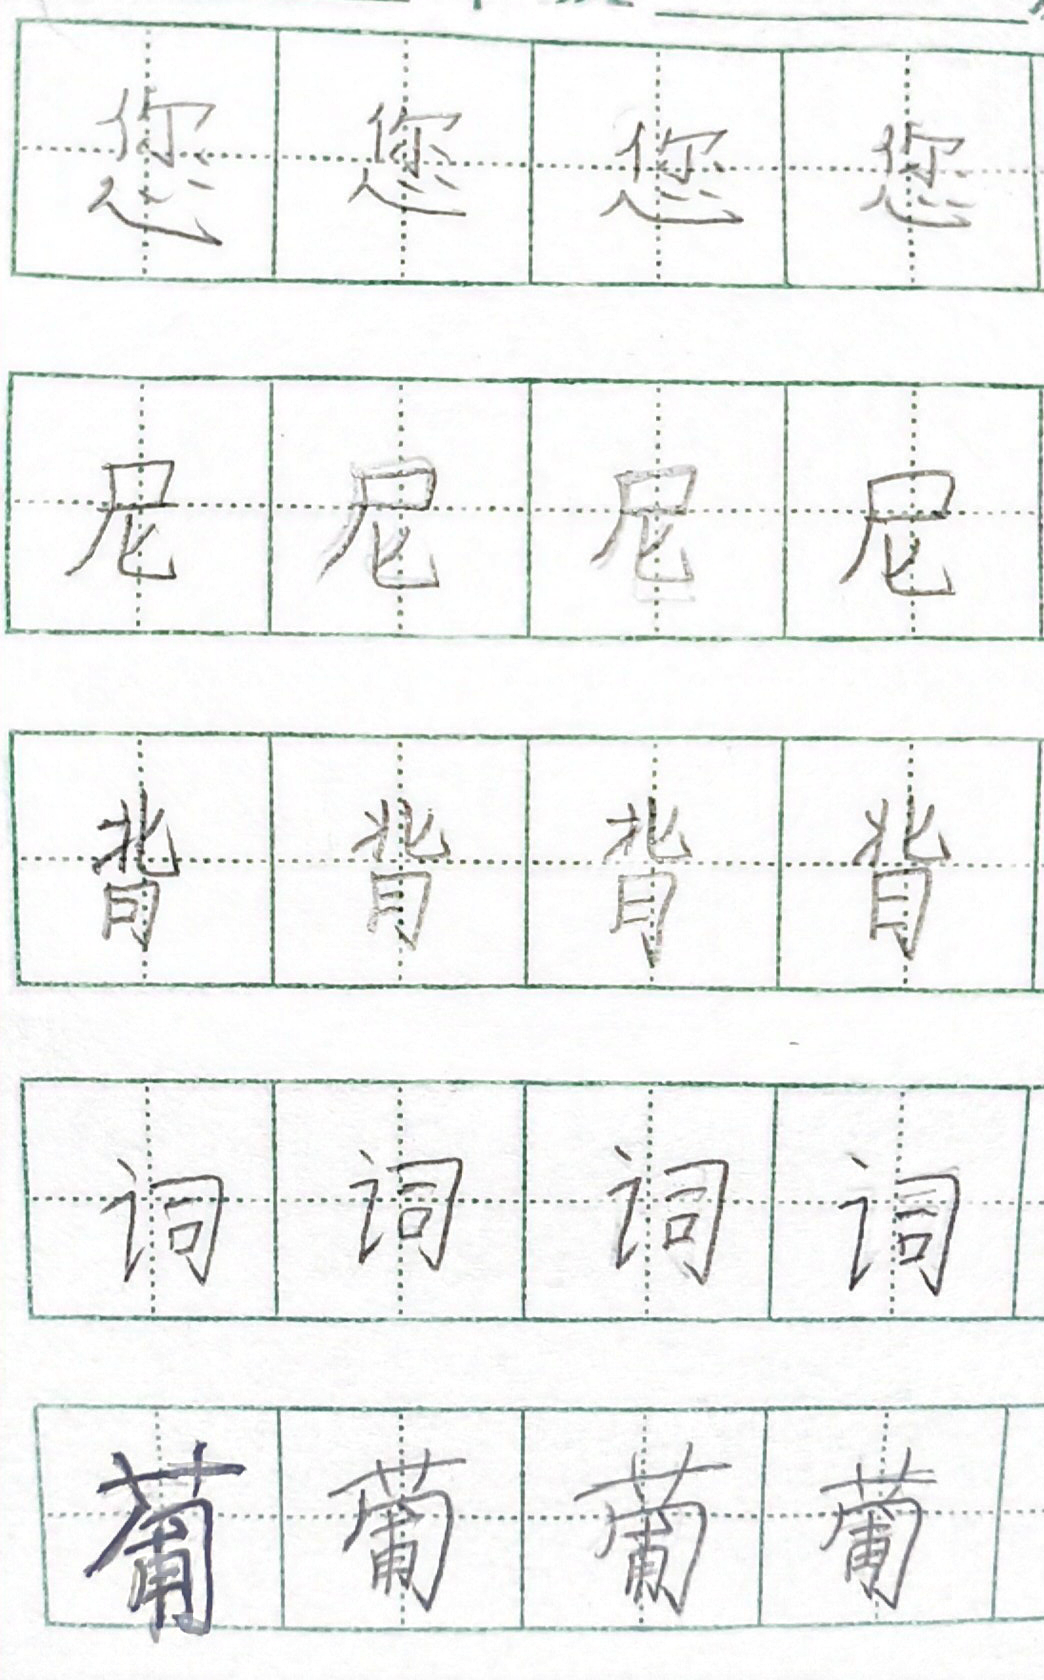 您 您 您 您
尼 尼 尼 尼
背 背 背 背
词 词 词 词
葡 葡 葡 葡